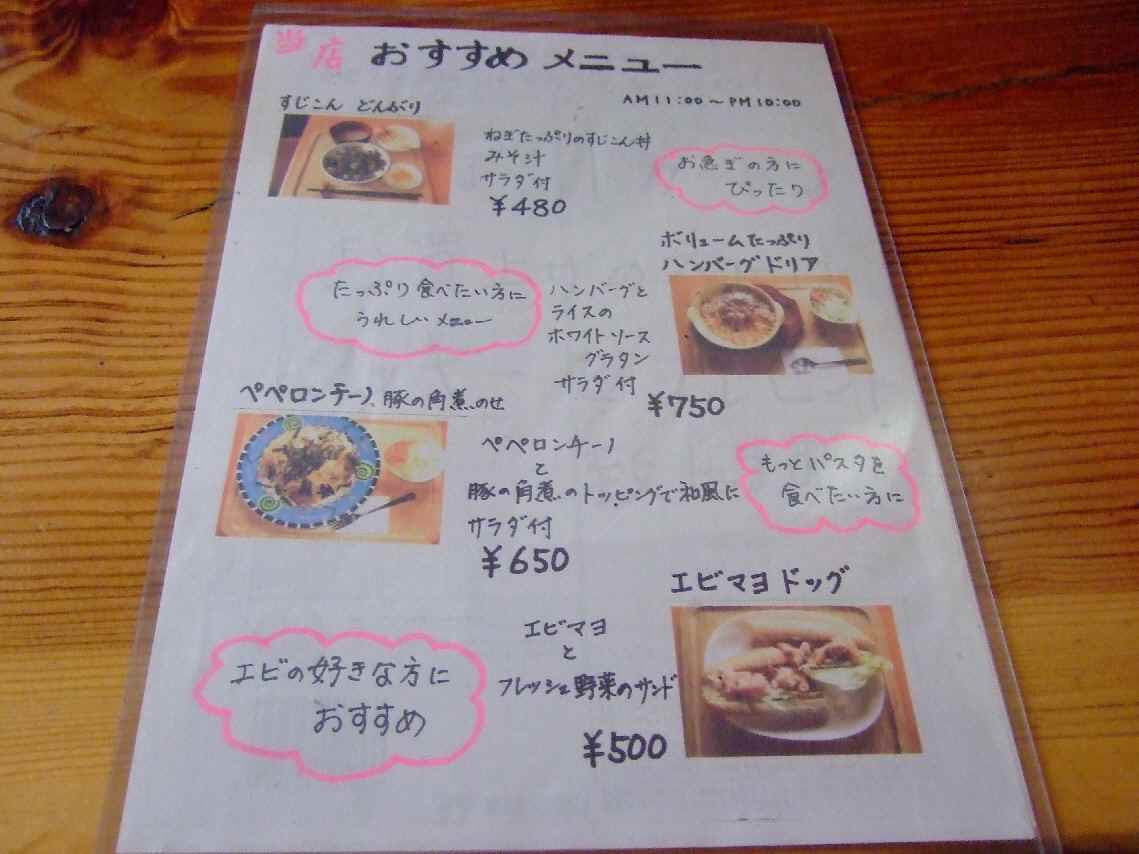 当店 おすすめ メニュー
AM11:00～PM10:00
すじこん どんぶり
ねぎたっぷりのすじこん丼
みそ汁
サラダ付
¥480
お急ぎの方に
ぴったり
ボリュームたっぷり
ハンバーグドリア
たっぷり食べたい方に
うれしいメニュー
ハンバーグと
ライスの
ホワイトソース
グラタン
サラダ付
¥750
ペペロンチーノ 豚の角煮のせ
ペペロンチーノ
と
豚の角煮のトッピングで和風に
サラダ付
¥650
もっとパスタを
食べたい方に
エビマヨドッグ
エビマヨ
と
フレッシュ野菜のサンド
¥500
エビの好きな方に
おすすめ